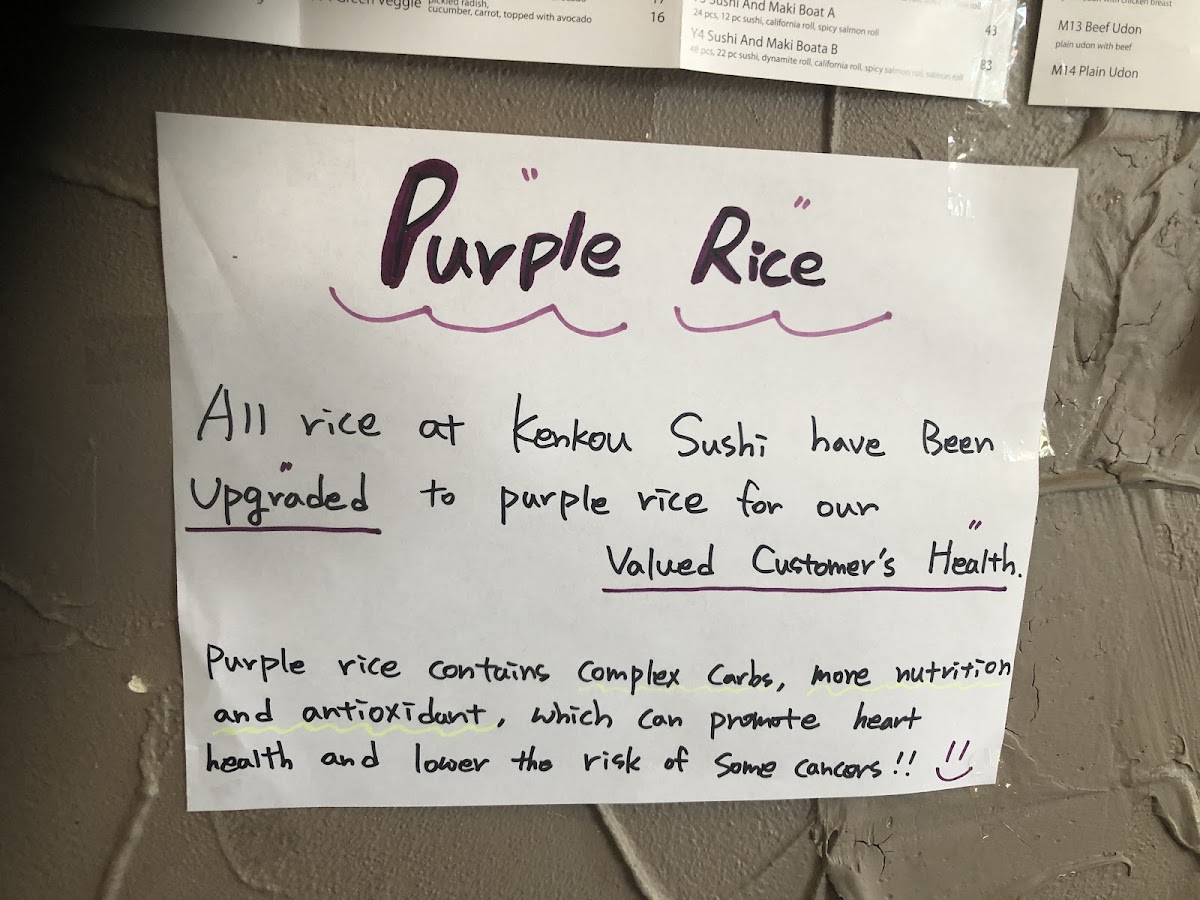 Green Veggie
pickled radish,
cucumber, carrot, topped with avocado
17
16
Y3 Sushi And Maki Boat A
24 pcs, 12 pc sushi, california roll, spicy salmon roll
43
Y4 Sushi And Maki Boata B
48 pcs, 22 pc sushi, dynamite roll, california roll, spicy salmon roll, salmon roll
83
with chicken breast
M13 Beef Udon
plain udon with beef
M14 Plain Udon
Purple Rice
All rice at Kenkou Sushi have Been
Upgraded to purple rice for our
Valued Customer's Health.
Purple rice contains complex carbs, more nutrition
and antioxidant, which can promote heart
health and lower the risk of some cancers!!